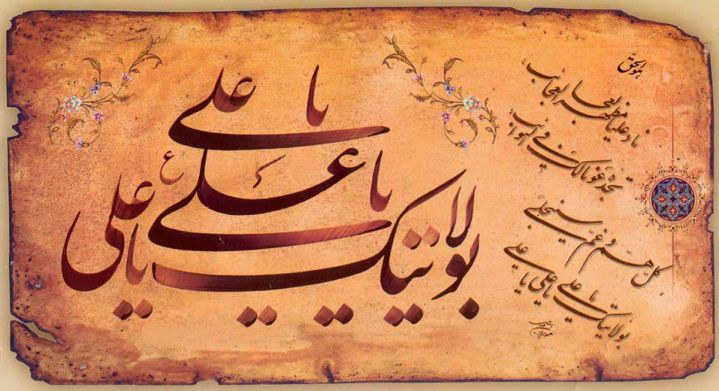 هو الحق
ناد علیا مظهر العجائب
تجده عونا لک فی النوائب
کل هم و غم سینجلی
بولایتک یا علی یا علی یا علی
یا علی
یا علی
بولایتک یا علی